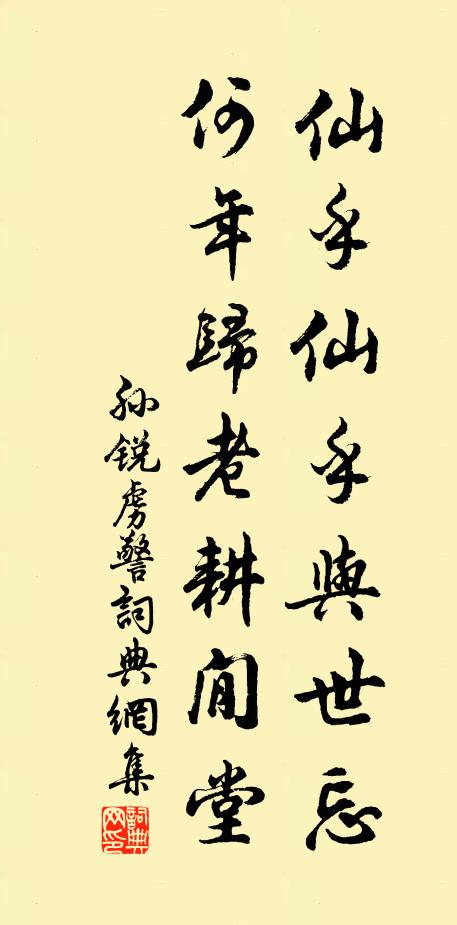 仙乎仙乎與世忘
何年歸老耕閒堂
孙锐虏警詞典網集
詞典网印